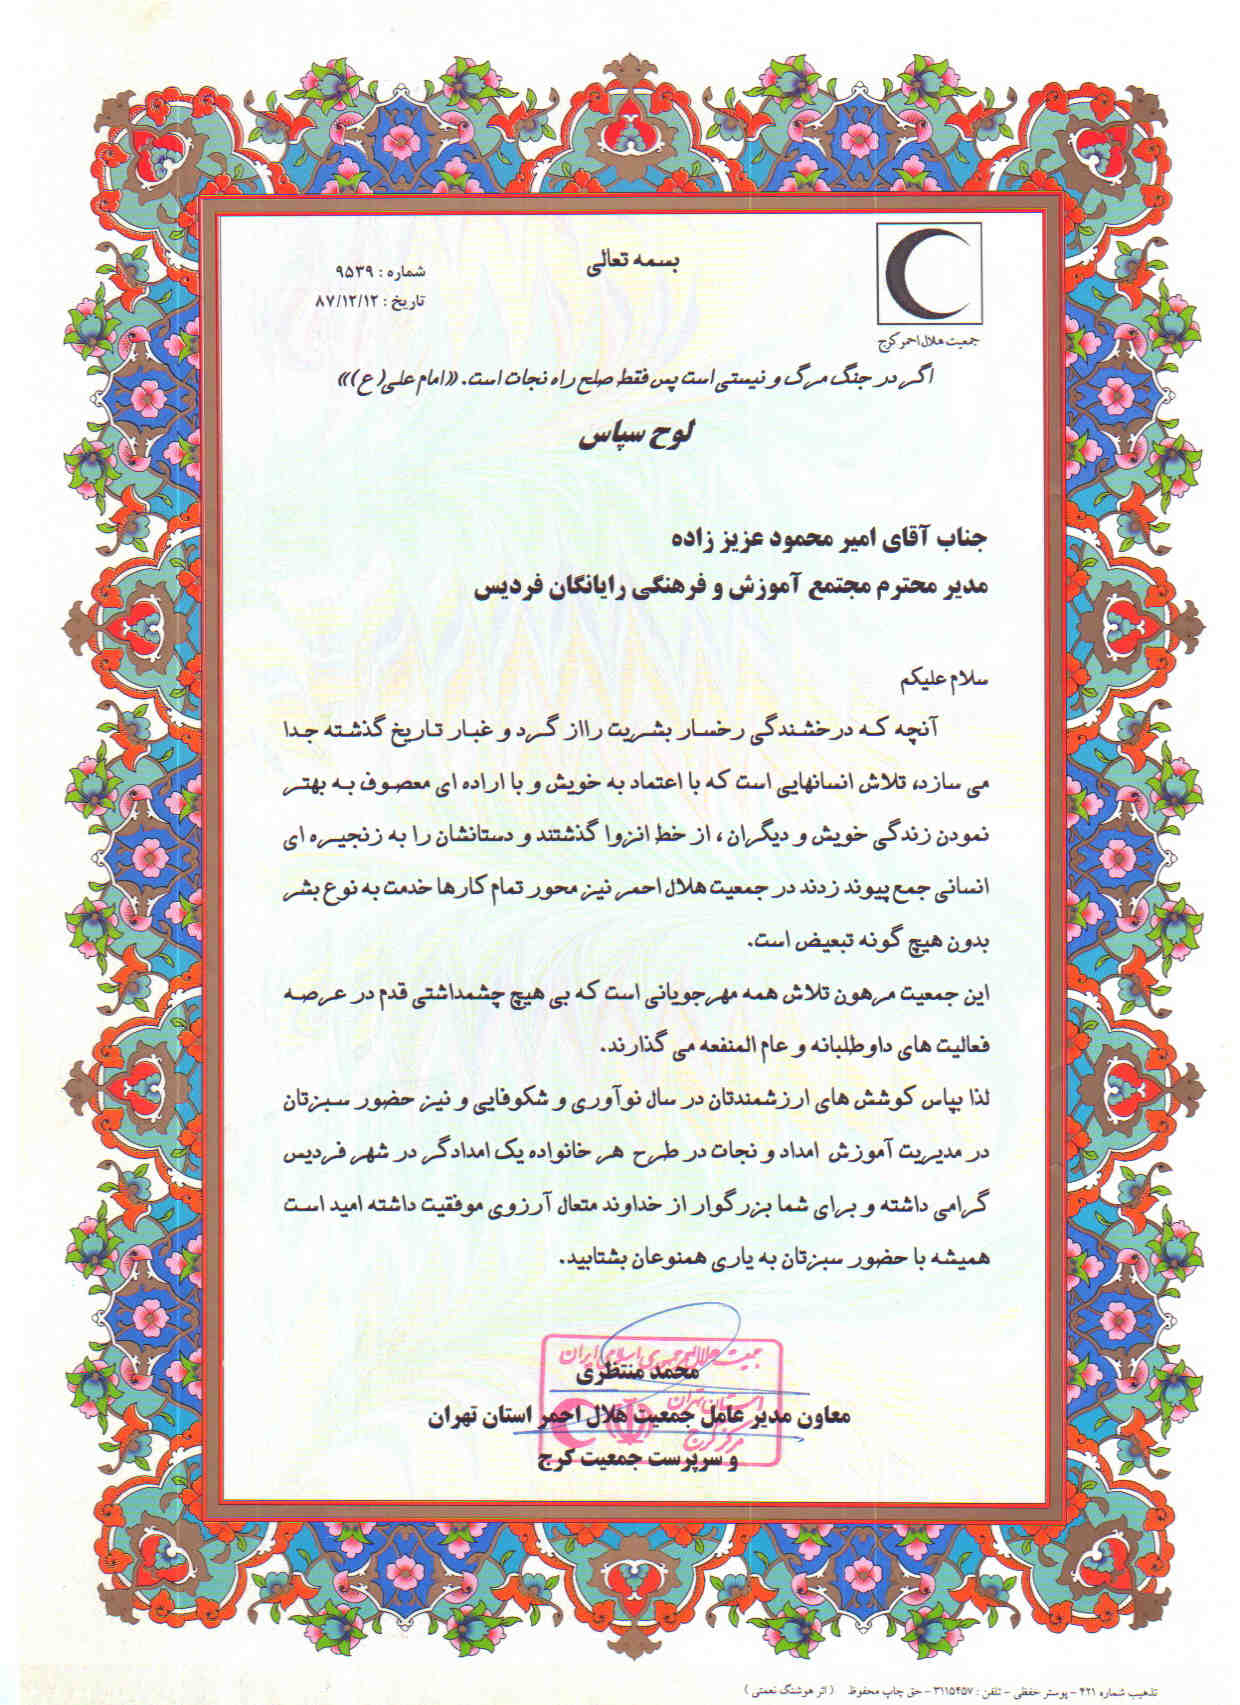 بسمه تعالی
شماره : ۹۵۳۹
تاریخ : ۸۷/۱۲/۱۲
جمعیت هلال احمر کرج
اگر در جنگ مرگ و نیستی است پس فقط صلح راه نجات است. «امام علی(ع)»
لوح سپاس
جناب آقای امیر محمود عزیز زاده
مدیر محترم مجتمع آموزش و فرهنگی رایانگان فردیس
سلام علیکم
آنچه که درخشندگی رخسار بشریت رااز گرد و غبار تاریخ گذشته جدا
می سازد، تلاش انسانهایی است که با اعتماد به خویش و با اراده ای معصوف به بهتر
نمودن زندگی خویش و دیگران ، از خط انزوا گذشتند و دستانشان را به زنجیره ای
انسانی جمع پیوند زدند در جمعیت هلال احمر نیز محور تمام کارها خدمت به نوع بشر
بدون هیچ گونه تبعیض است.
این جمعیت مرهون تلاش همه مهرجویانی است که بی هیچ چشمداشتی قدم در عرصه
فعالیت های داوطلبانه و عام المنفعه می گذارند.
لذا بپاس کوشش های ارزشمندتان در سال نوآوری و شکوفایی و نیز حضور سبزتان
در مدیریت آموزش امداد و نجات در طرح هر خانواده یک امدادگر در شهر فردیس
گرامی داشته و برای شما بزرگوار از خداوند متعال آرزوی موفقیت داشته امید است
همیشه با حضور سبزتان به یاری همنوعان بشتابید.
جمعیت هلال احمر جمهوری اسلامی ایران
محمد منتظری
استان تهران
معاون مدیر عامل جمعیت هلال احمر استان تهران
مرکز کرج
و سرپرست جمعیت کرج
تذهیب شماره ۴۲۱ - پوستر حفظی - تلفن : ۳۱۱۵۴۵۷ - حق چاپ محفوظ ( اثر هوشنگ نعمتی )